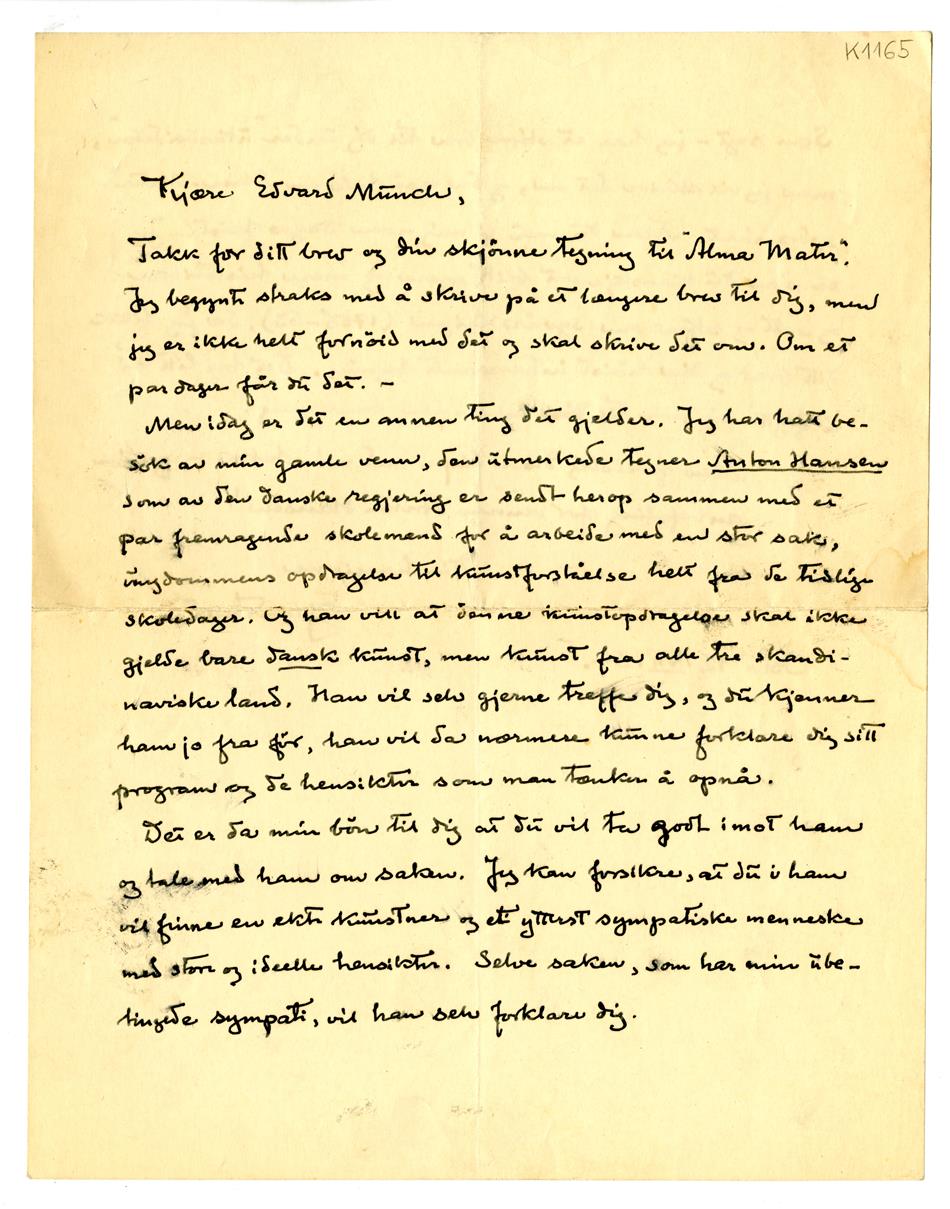 K1165
Kjære Edvard Munch,
Takk for ditt brev og din skjönne tegning til "Alma Mater".
Jeg begynte straks med å skrive på et længere brev til dig, men
jeg er ikke helt fornöid med det og skal skrive det om. Om et
par dager får du det. –
Men idag er det en annen ting det gjelder. Jeg har hatt be-
sök av min gamle venn, den utmerkede tegner Anton Hansen
som av den danske regjering er sendt herop sammen med et
par fremragende skolemænd for å arbeide med en stor sak,
ungdommens opdragelse til kunstforståelse helt fra de tidlige
skoledager. Og han vill at denne kunstopdragelse skal ikke
gjelde bare dansk kunst, men kunst fra alle tre skandi-
naviske land. Han vil selv gjerne treffe dig, og du kjenner
ham jo fra för, han vil da nærmere kunne forklare dig sitt
program og de hensikter som man tænker å opnå.
Det er da min bön til dig at du vil ta godt imot ham
og tale med ham om saken. Jeg kan forsikre, at du i ham
vil finne en ekte kunstner og et ytterst sympatiske menneske
med store og ideelle hensikter. Selve saken, som har min ube-
tingede sympati, vil han selv forklare dig.